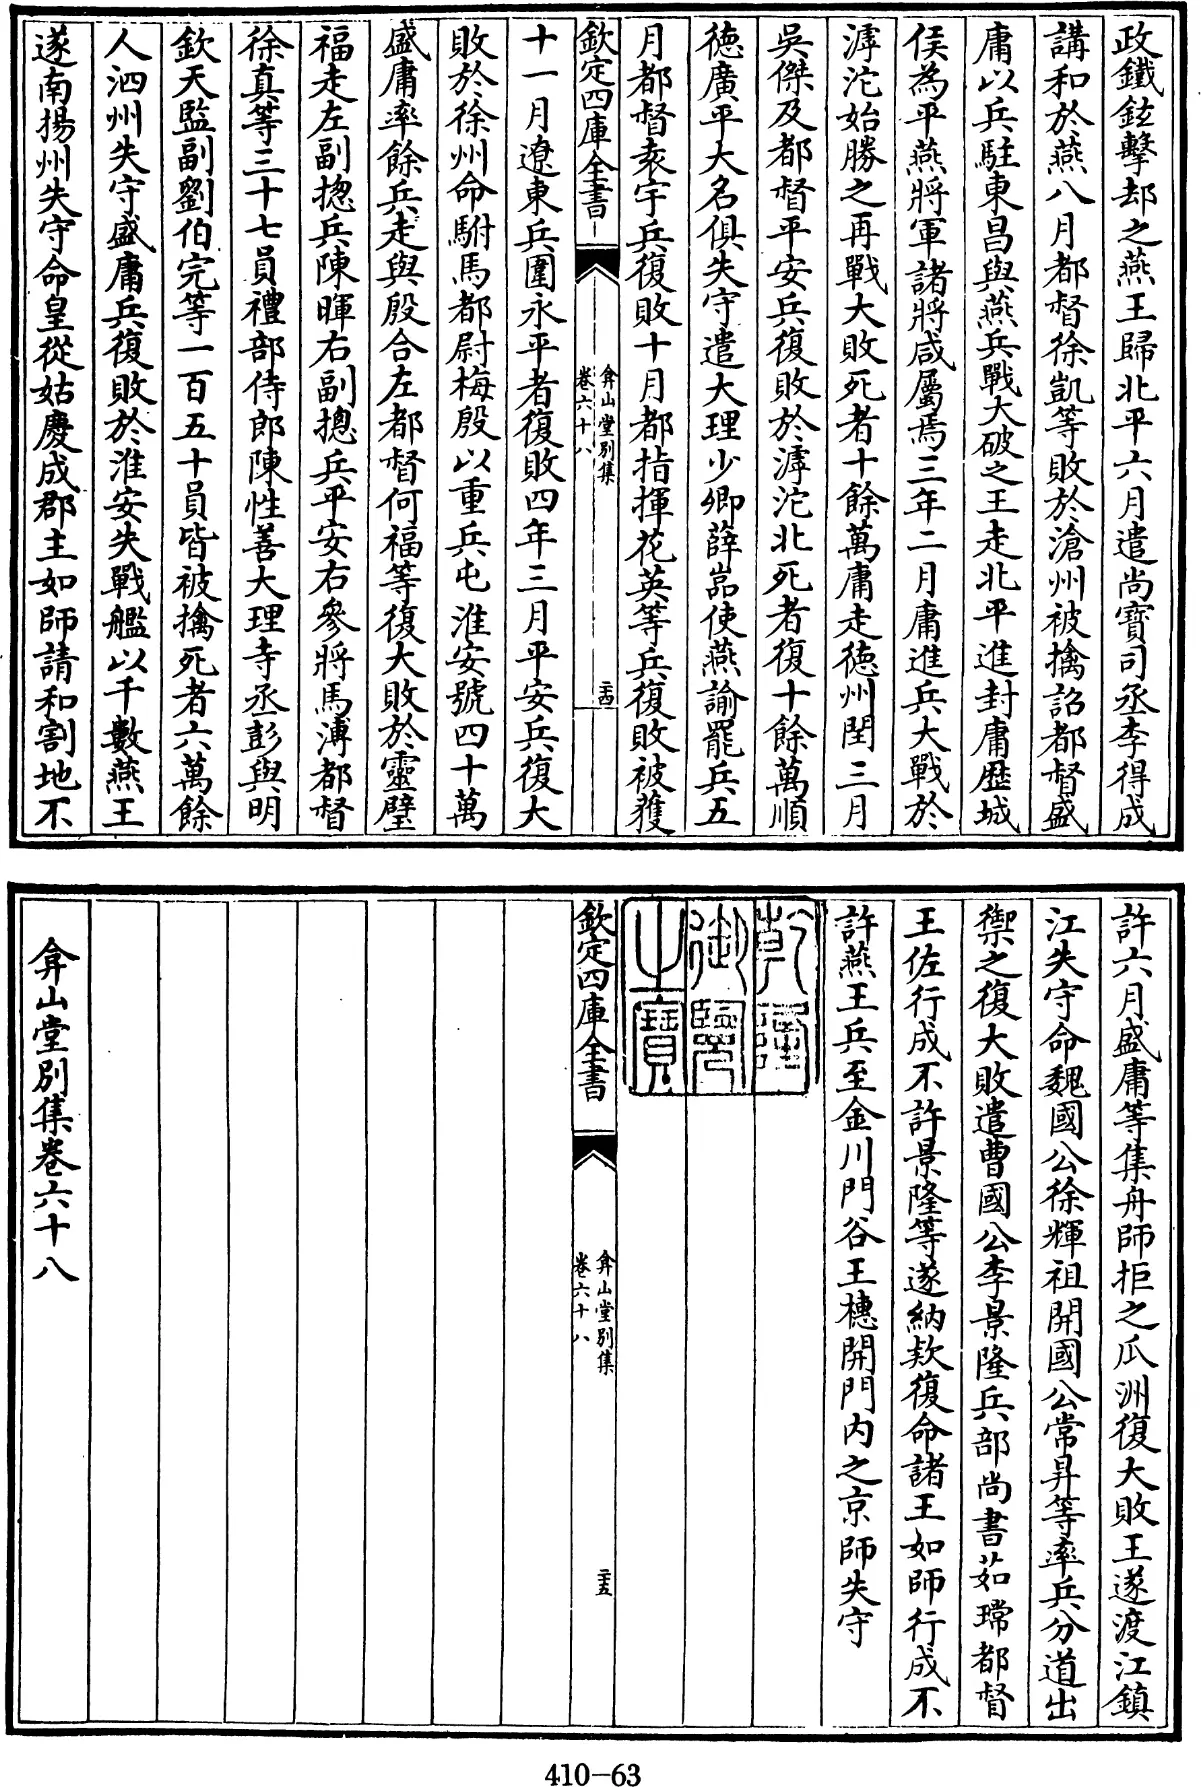 政鐵鉉擊却之燕王歸北平六月遣尚寶司丞李得成
講和於燕八月都督徐凱等敗於滄州被擒詔都督盛
庸以兵駐東昌與燕兵戰大破之王走北平進封庸歴城
侯為平燕將軍諸將咸屬焉三年二月庸進兵大戰於
滹沱始勝之再戰大敗死者十餘萬庸走徳州閏三月
吳傑及都督平安兵復敗於滹沱北死者復十餘萬順
徳廣平大名俱失守遣大理少卿薛嵓使燕諭罷兵五
月都督袁宇兵復敗十月都指揮花英等兵復敗被獲
欽定四庫全書
弇山堂别集
卷六十八
二十四
十一月遼東兵圍永平者復敗四年三月平安兵復大
敗於徐州命駙馬都尉梅殷以重兵屯淮安號四十萬
盛庸率餘兵走與殷合左都督何福等復大敗於靈璧
福走左副摠兵陳暉右副摠兵平安右參將馬溥都督
徐真等三十七員禮部侍郎陳性善大理寺丞彭與明
欽天監副劉伯完等一百五十員皆被擒死者六萬餘
人泗州失守盛庸兵復敗於淮安失戰艦以千數燕王
遂南揚州失守命皇從姑慶成郡主如師請和割地不
許六月盛庸等集舟師拒之瓜洲復大敗王遂渡江鎮
江失守命魏國公徐輝祖開國公常昇等率兵分道出
禦之復大敗遣曹國公李景隆兵部尚書茹瑺都督
王佐行成不許景隆等遂納欵復命諸王如師行成不
許燕王兵至金川門谷王橞開門内之京師失守
乾隆
御覽
之寶
欽定四庫全書
弇山堂别集
卷六十八
二十五
弇山堂别集卷六十八
410-63